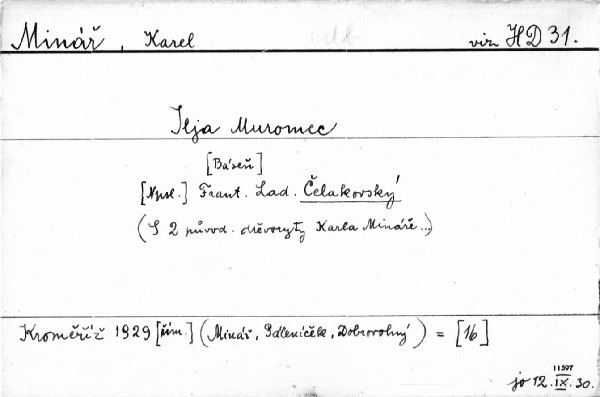 Minář, Karel viz HD 31.
Ilja Muromec
[Báseň]
[Npsl.] Frant. Lad. Čelakovský
(S 2 původ. dřevoryty Karla Mináře...)
Kroměříž 1929 [řím.] (Minář, Sdleníček, Dobrovolný) = [16]
11597
jo 12. IX. 30.